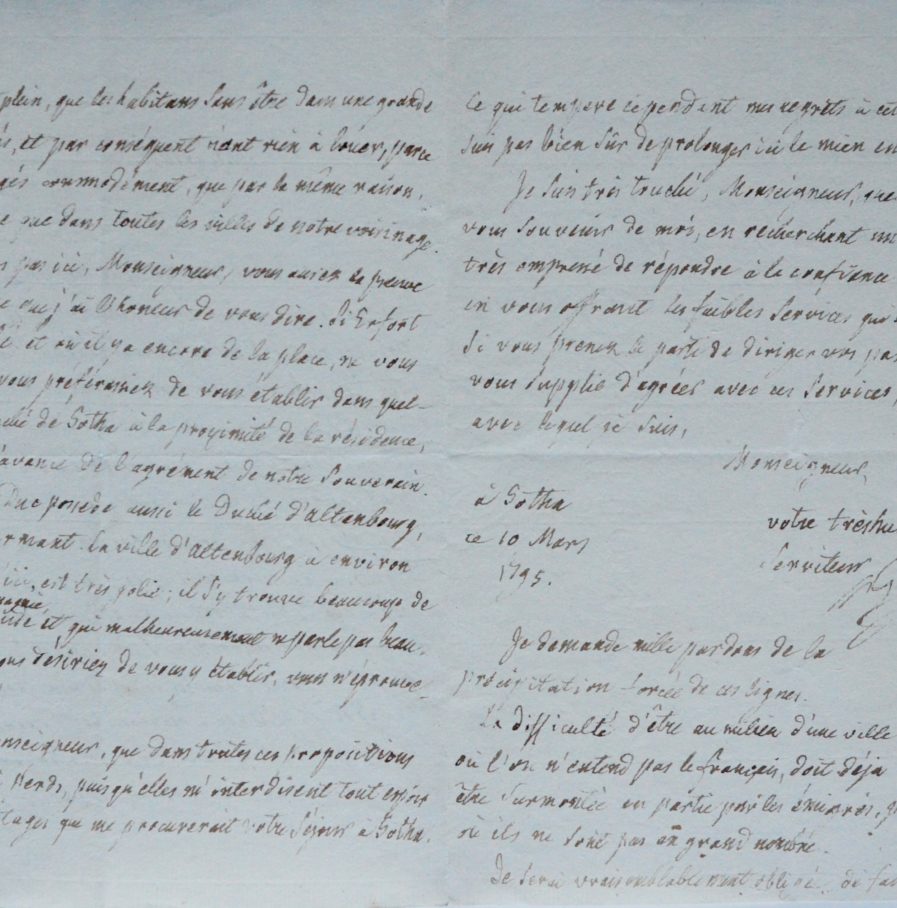 plein, que les habitans sans être dans une grande
et par conséquent n'ont rien à louer, parce
commodément, que par la même raison,
que dans toutes les villes de notre voisinage.
pas ici, Monseigneur, vous auriez la preuve
que j'ai l'honeur de vous dire. Si Erfort
et où il y a encore de la place, ne vous
vous préféririez de vous établir dans quel-
de Gotha à la proximité de la résidence,
avance de l'agrément de notre Souverain.
Duc possede aussi le Duché d'Altenbourg,
La ville d'Altenbourg à environ
est très jolie; il s'y trouve beaucoup de
et qui malheureusement ne parle pas beau-
désiriez de vous y établir, vous n'éprouve-
que dans toutes ces propositions
perds, puisqu'elles m'interdisent tout espoir
que me procurerait votre séjour à Gotha.
Ce qui tempere cependant mes regrets à cet
suis pas bien sûr de prolonger ici le mien en
Je suis très touché, Monseigneur, que
vous souvenir de moi, en recherchant
très empressé de répondre à la confiance
en vous offrant les foibles services que
Si vous prenez le parti de diriger vos pas
vous supplie d'agréer avec ces services,
avec lequel je suis,
Monseigneur,
à Gotha
ce 10 Mars
1795.
votre très hu
Serviteur
Je demande mille pardons de la
précipitation forcée de ces lignes.
La difficulté d'être au milieu d'une ville
où l'on n'entend pas le françois, doit déja
être surmontée en partie par les émigrés,
où ils ne sont pas en grand nombre.
Je serai vraisemblablement obligé de